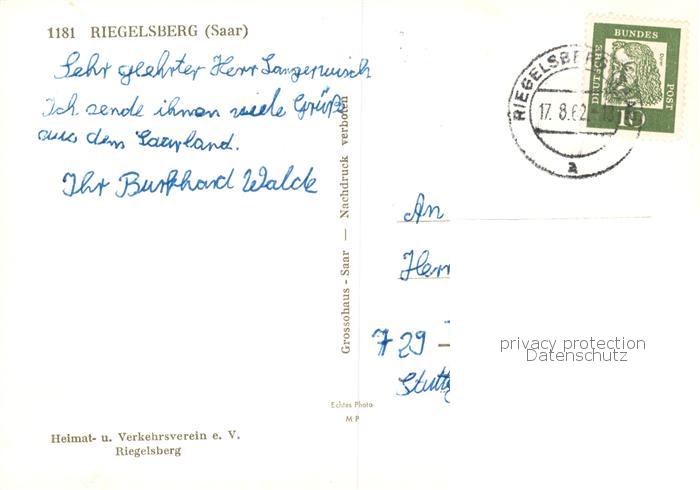 1181 RIEGELSBERG (Saar)
Sehr geehrter Herr Langerwisch
Ich sende ihnen viele Grüße
aus dem Saarland.
Ihr Burkhard Walde
Grossohaus - Saar — Nachdruck verboten
Echtes Photo
M P
Heimat- u. Verkehrsverein e. V.
Riegelsberg
RIEGELSBERG
17. 8. 62
a
DEUTSCHE
BUNDES
POST
10
An
Herrn
729 -
Stuttg
privacy protection
Datenschutz